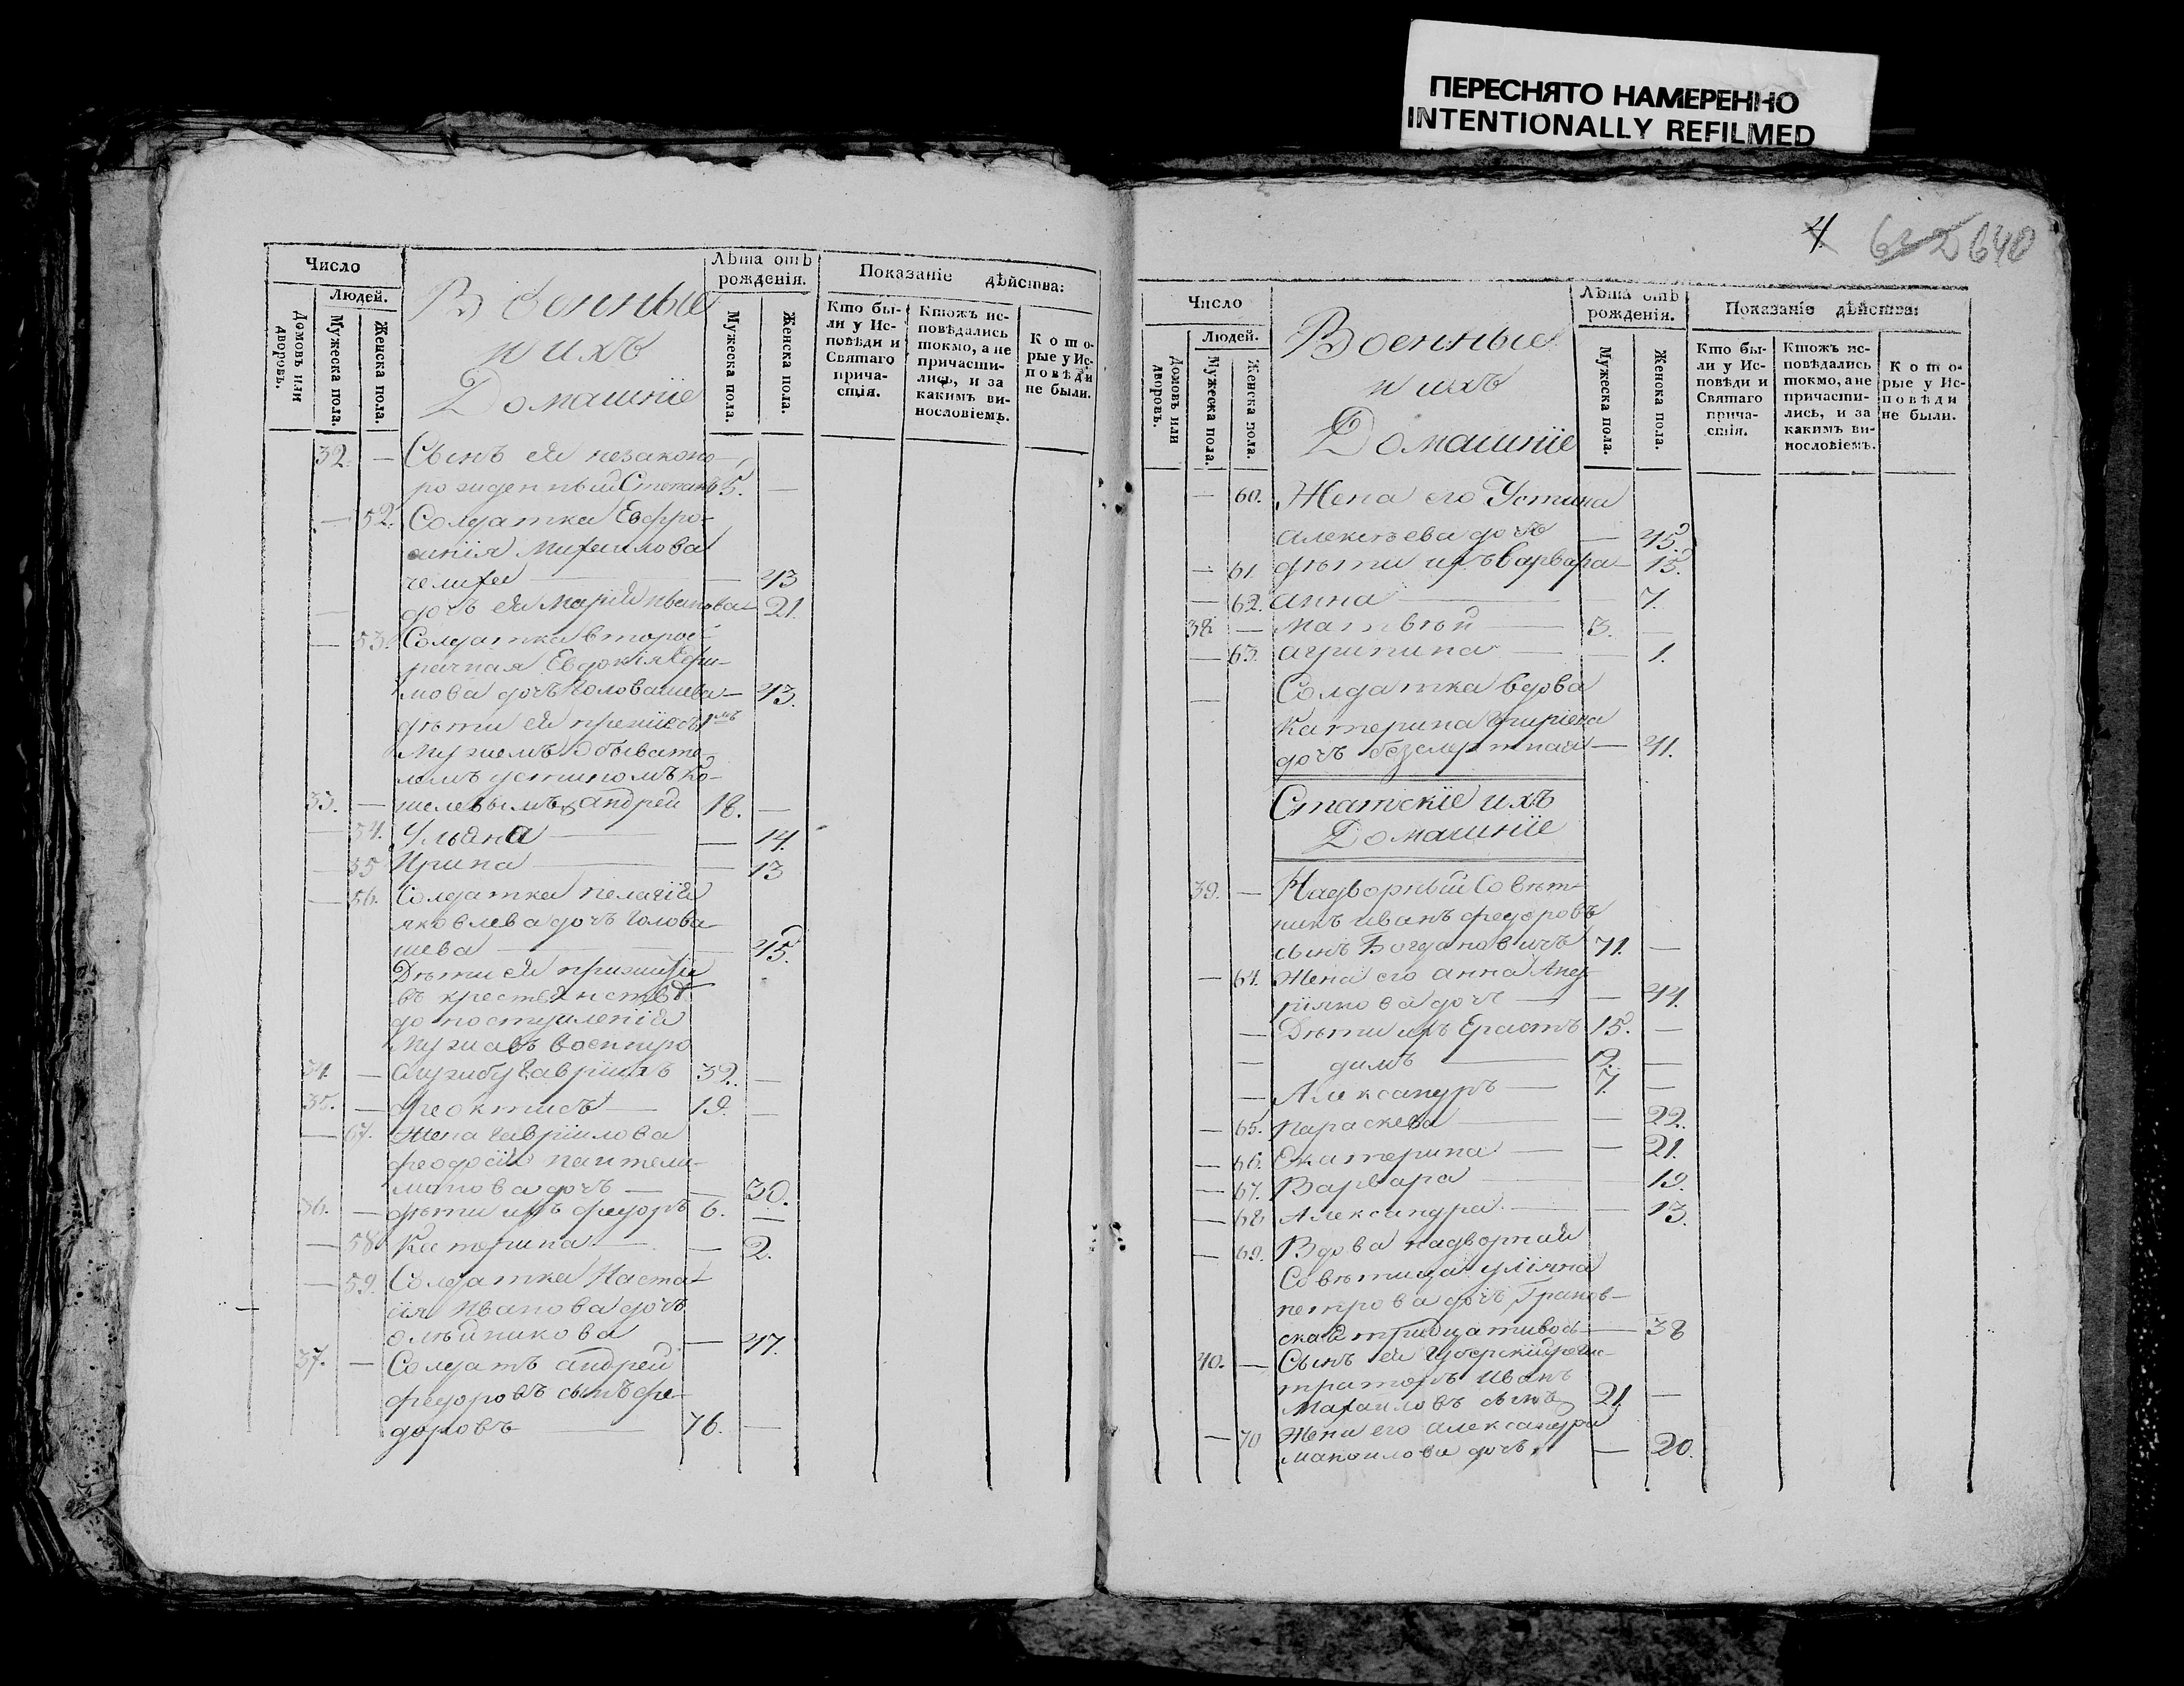 ПЕРЕСНЯТО НАМЕРЕННО
INTENTIONALLY REFILMED
4
640
Число
Людей.
Домовъ или дворовъ.
Мужеска пола.
Женска пола.
Военные
и ихъ
Домашніе
Лѣта отъ рожденія.
Мужеска пола.
Женска пола.
Показаніе дѣйства:
Кто бы-
ли у Ис-
повѣди и
Святаго
прича-
стія.
Ктожъ ис-
повѣдались
токмо, а не
причасти-
лись, и за
какимъ ви-
нословіемъ.
Кото-
рые у Ис-
повѣди
не были.
32. — Сынъ ея незаконо-
рожденный Степанъ 5. —
— 52. Солдатка Евфро-
синія Михаилова
— 43
— дочъ ея Марія Иванова — 21.
— 53. Солдатка второб-
рачная Евдокія Ефи-
мова дочъ Головашева — 43.
дѣти ея
мужемъ обывате-
лемъ Устиномъ Ко-
33. — шелевымъ Андрей 18. —
— 54. Ульяна — — 14.
— 55 Ирина — — 13
— 56. Солдатка Пелагія
Яковлева дочъ Голова-
шева — — 45.
Дѣти ея прижиты
въ крестьянствѣ
до поступленія
мужа въ воинскую
34. — службу Гавріилъ 32. —
35. — Феоктистъ — 19. —
— 57. Жена Гавріилова
Феодосія Пантели-
монова дочъ — — 30.
36. — дѣти ихъ Федоръ 6. —
— 58. Катерина — — 2.
— 59. Солдатка Наста-
сія Иванова дочъ
Олѣйникова — 47.
37. — Солдатъ Андрей
Федоровъ сынъ Фе-
доровъ — 76. —
Число
Людей.
Домовъ или дворовъ.
Мужеска пола.
Женска пола.
Военные
и ихъ
Домашніе
Лѣта отъ рожденія.
Мужеска пола.
Женска пола.
Показаніе дѣйства:
Кто бы-
ли у Ис-
повѣди и
Святаго
прича-
стія.
Ктожъ ис-
повѣдались
токмо, а не
причасти-
лись, и за
какимъ ви-
нословіемъ.
Кото-
рые у Ис-
повѣди
не были.
— 60. Жена его Устина
Алексѣева дочъ — 45.
— 61. дѣти ихъ Варвара — 15.
— 62. Анна — — 7.
38. — Матвѣй — 3. —
— 63. Агрипина — — 1.
— Солдатка вдова
Катерина
дочъ безсмертная — 41.
Статскіе ихъ
Домашніе
39. — Надворный Совѣт-
никъ Иванъ Федоровъ
сынъ Богдановичъ 71. —
— 64. Жена его Анна Анд-
ріянова дочъ — — 44.
— Дѣти ихъ Ерастъ 15. —
— димъ — 9. —
— Александръ — 7. —
— 65. Параскева — — 22.
— 66. Екатерина — — 21.
— 67. Варвара — 19.
— 68. Александра — — 13.
— 69. Вдова надворная
Совѣтница Уліяна
Петрова дочъ Гранов-
ская — 38
40. — Сынъ ея Губернскій Регис-
траторъ Иванъ
Михаиловъ сынъ 21. —
— 70 Жена его Александра
Маноилова дочъ — 20.